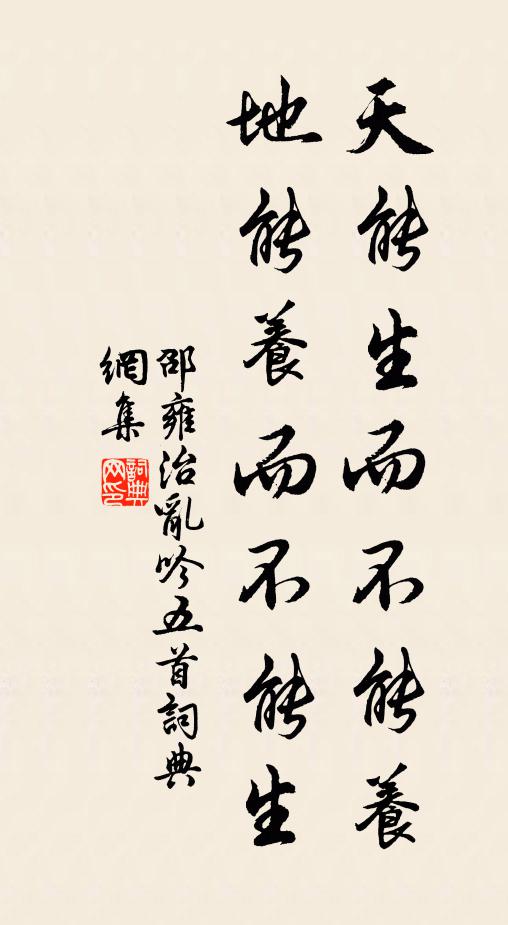 天能生而不能養
地能養而不能生
邵雍治亂吟五首詞典
網集
詞典
网印